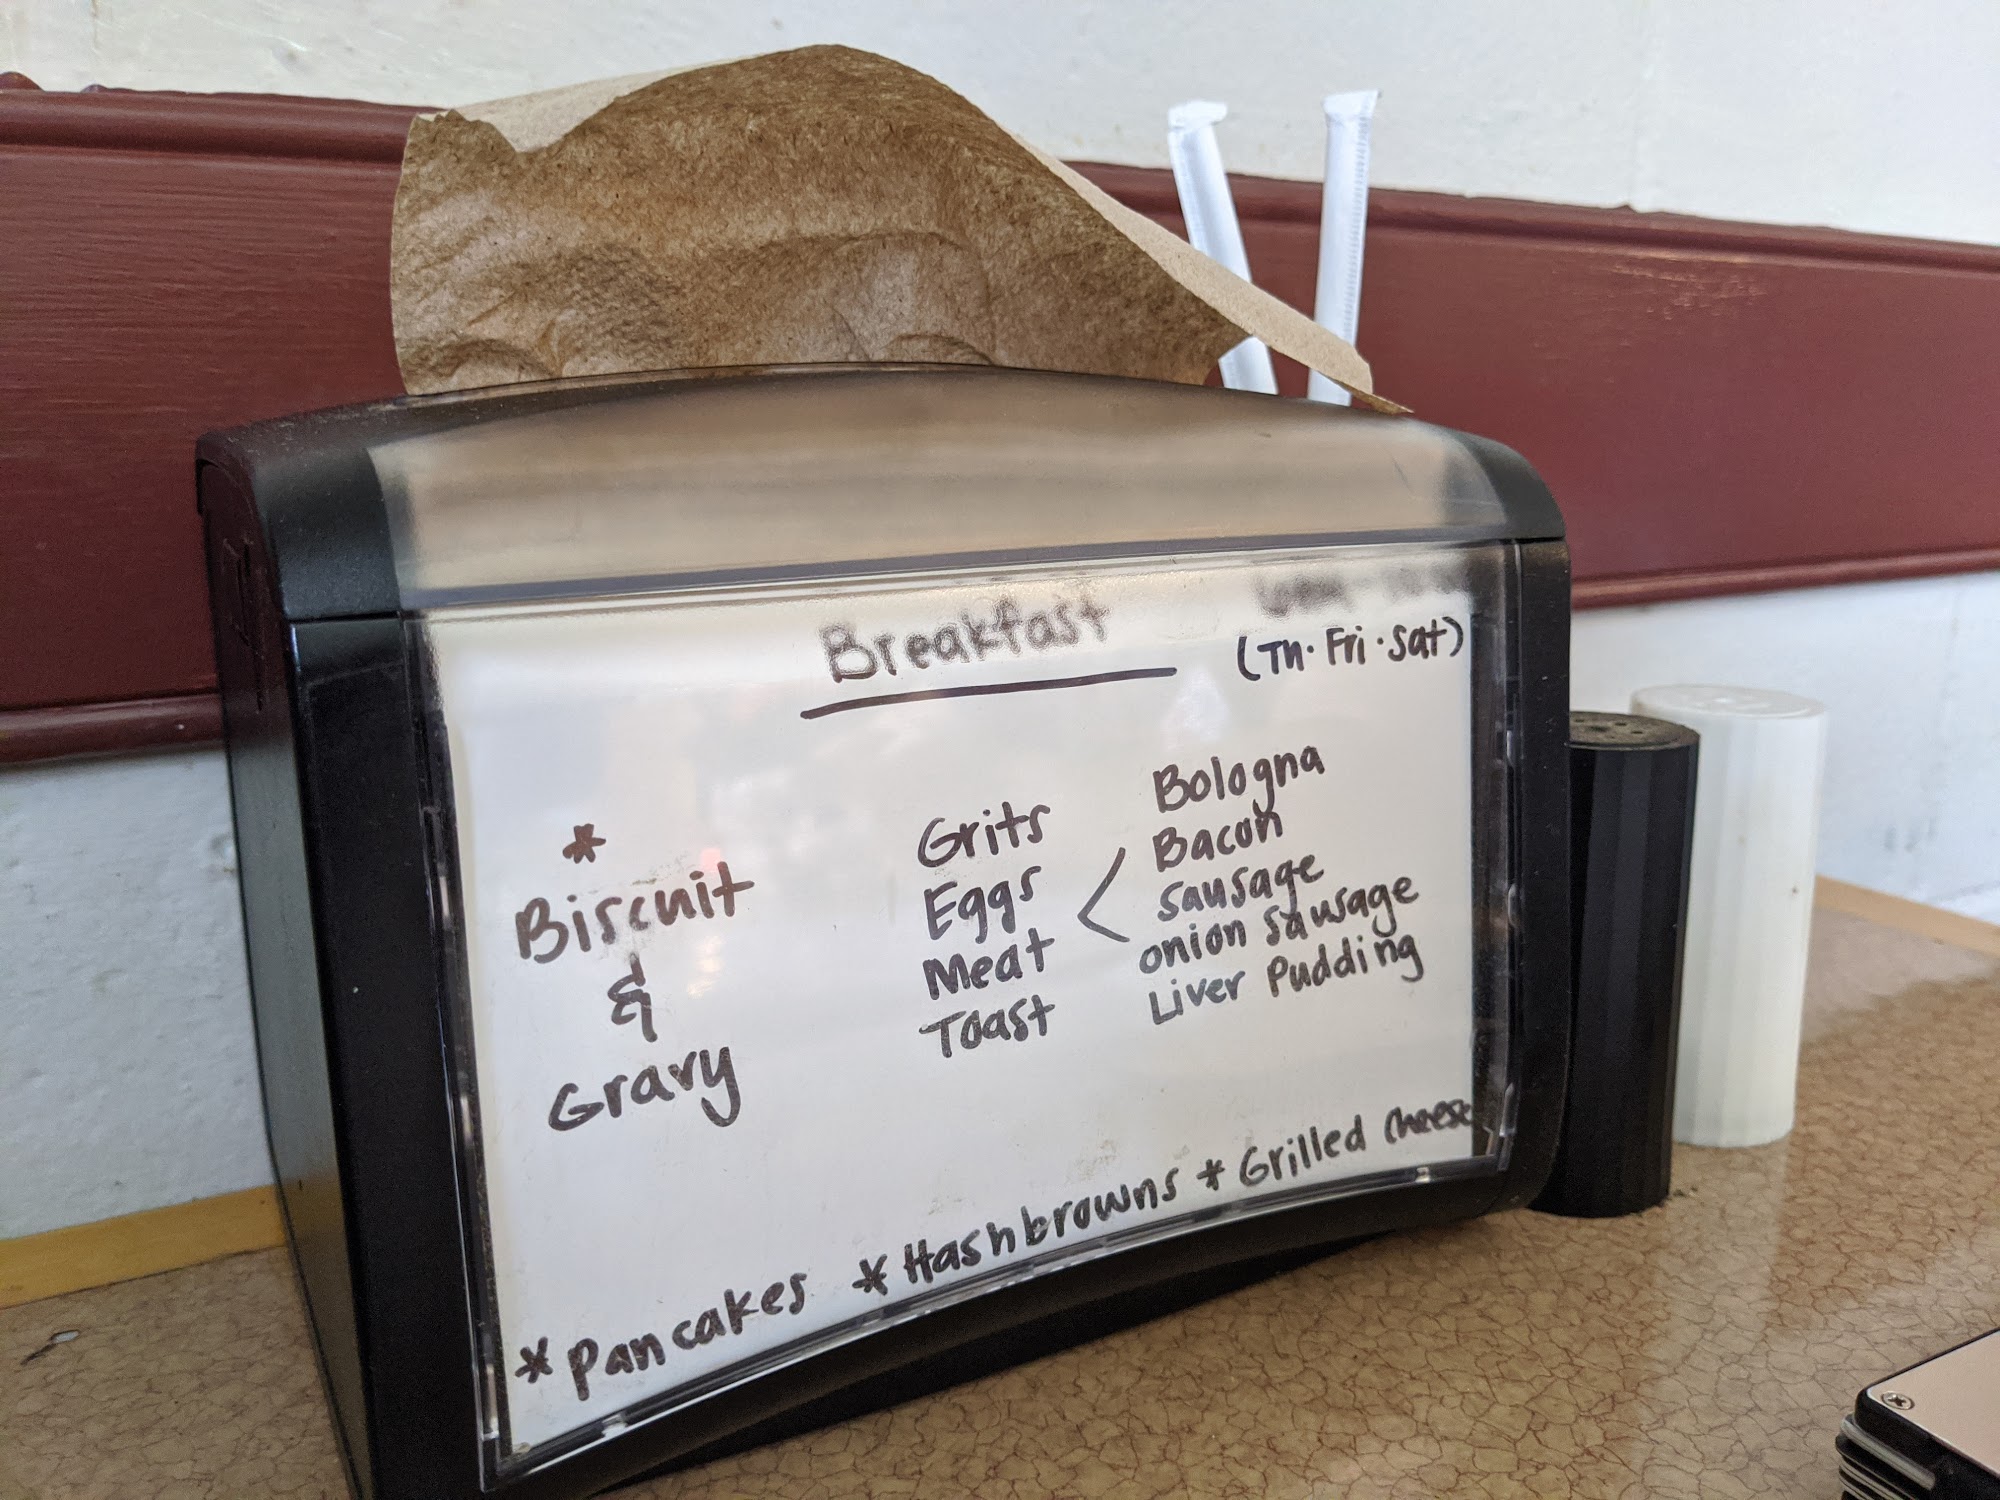 Breakfast
(Th. Fri. Sat)
*
Biscuit
&
Gravy
Grits
Eggs
Meat <
Toast
Bologna
Bacon
Sausage
onion sausage
Liver Pudding
* Pancakes * Hashbrowns * Grilled Cheese